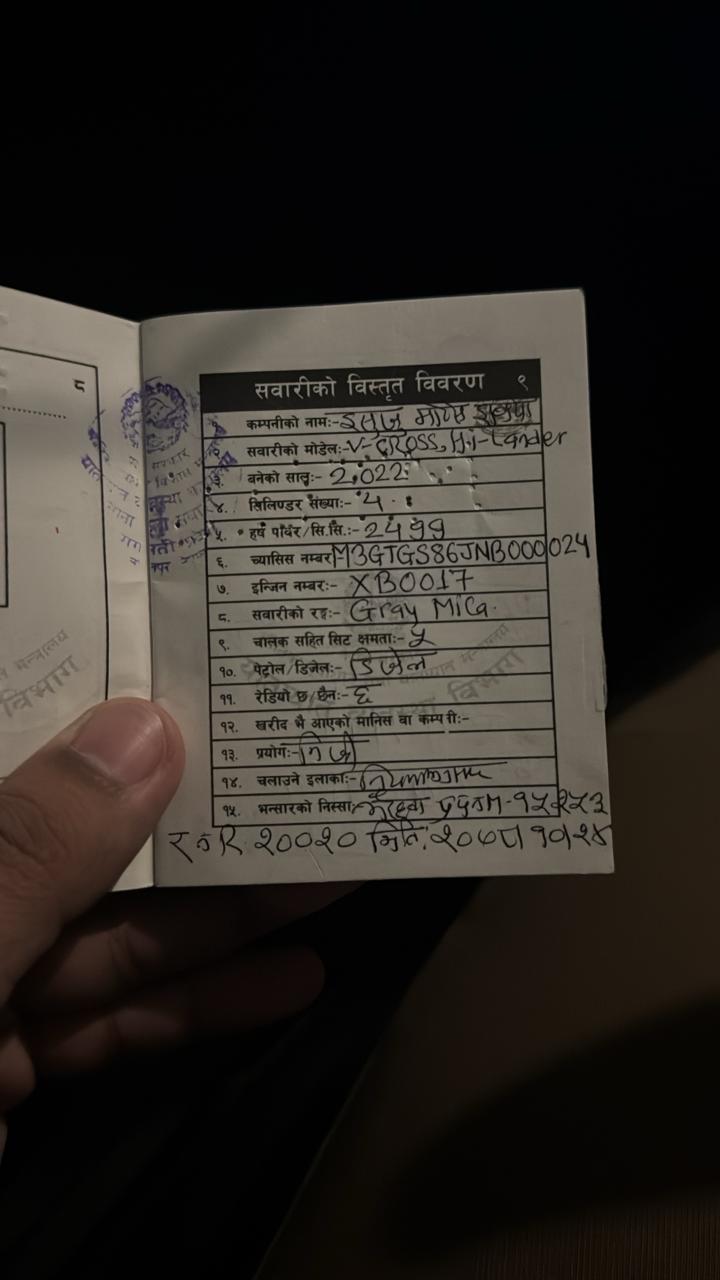 ८
सवारीको विस्तृत विवरण ९
कम्पनीको नामः- इसुजु मोटर्स
सवारीको मोडेलः- V-CROSS, Hi-Lander
३. बनेको सालः- 2022
४. सिलिण्डर संख्याः- 4
५. हर्ष पावर/सि.सिः- 2499
६. च्यासिस नम्बर M3GTGS86JNB000024
७. इन्जिन नम्बरः- XB0017
८. सवारीको रङ्गः- Gray Mica.
९. चालक सहित सिट क्षमताः- ५
१०. पेट्रोल/डिजेलः- डिजेल
११. रेडियो छ/छैनः- छ
१२. खरीद भै आएको मानिस वा कम्पनीः-
१३. प्रयोगः- निजी
१४. चलाउने इलाकाः- नियमानुसार
१५. भन्सारको निस्सा प्रपनM-१५२५३
R २००२० मिति: २०७८।१०।२४
विभाग